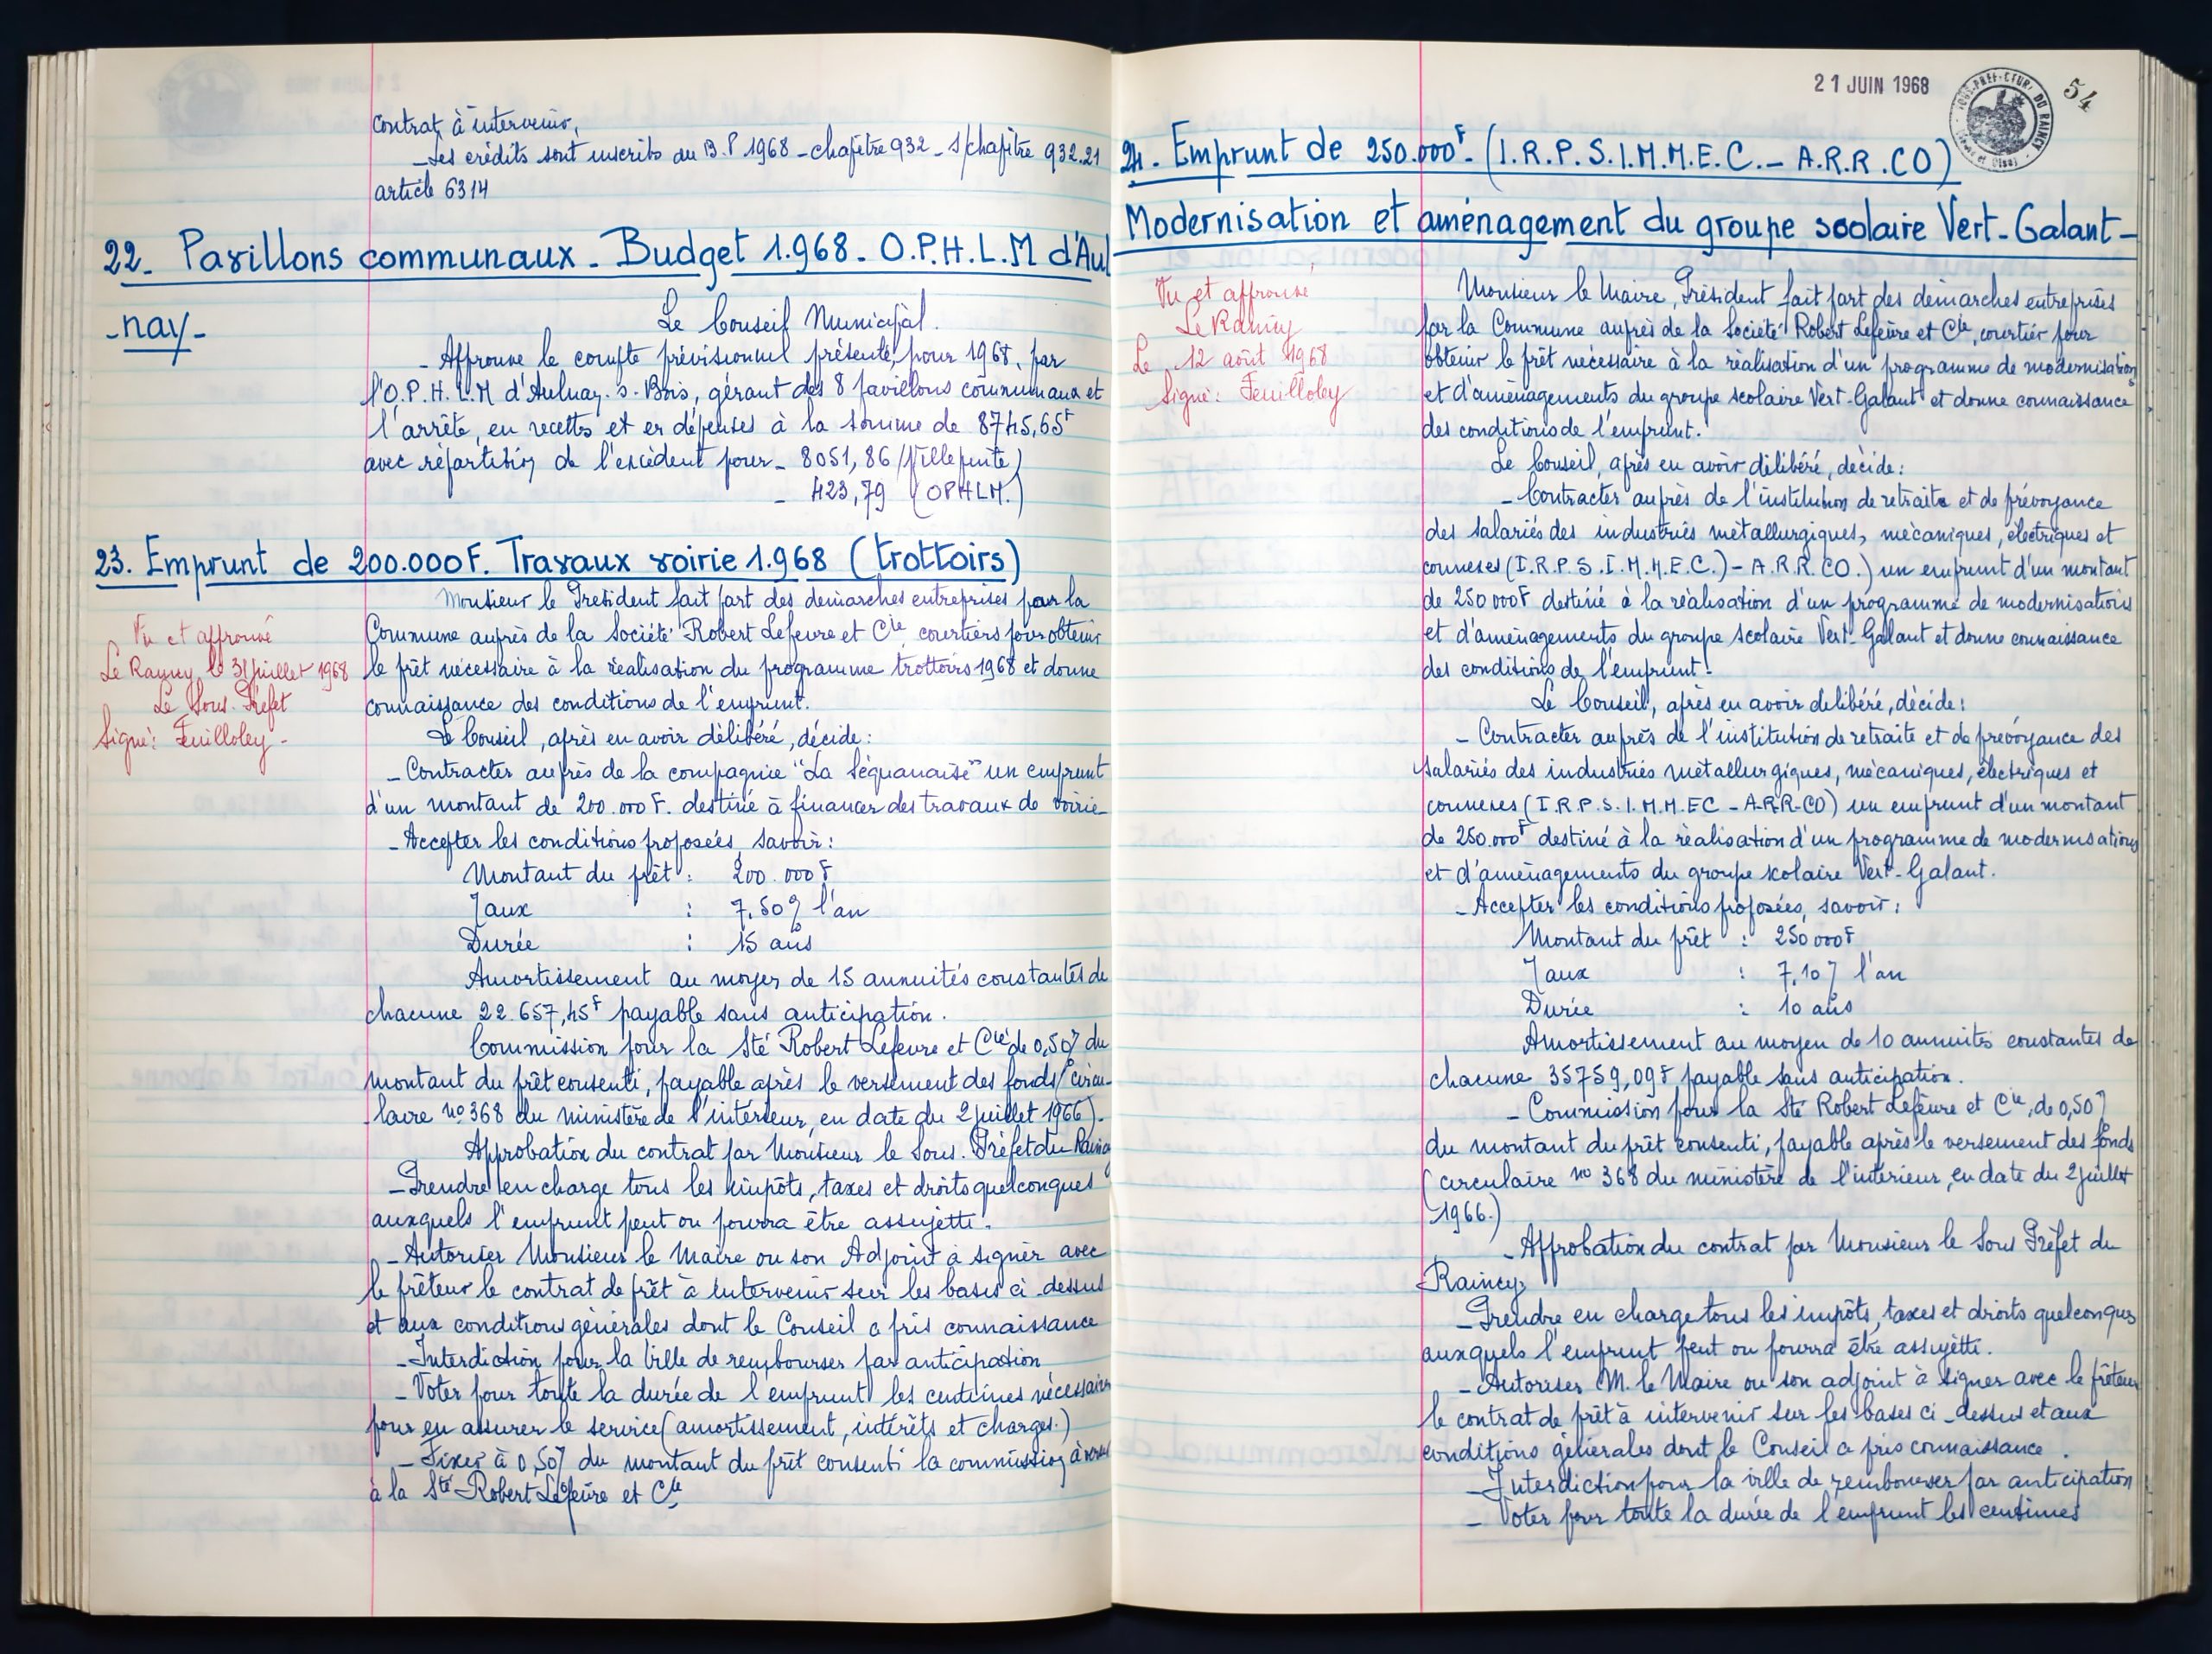 contrat à intervenir,
_Les crédits sont inscrits au B.P 1968 _ chapitre 932 _ s/chapitre 932.21
article 6314
22_ Pavillons communaux _ Budget 1.968 _ O.P.H.L.M d'Aul
-nay-
Le Conseil Municipal.
_ Approuve le compte prévisionnel présenté, pour 1968, par
l'O.P.H.L.M d'Aulnay-s-Bois, gérant des 8 pavillons communaux et
l'arrête, en recettes et en dépenses à la somme de 8745,65F
avec répartition de l'excédent pour _ 8051,86 (Villepinte)
_ 423,79 (OPHLM.)
23. Emprunt de 200.000F. Travaux voirie 1.968 (trottoirs)
Monsieur le Président fait part des démarches entreprises par la
Commune auprès de la Société Robert Lefeuvre et Cie courtiers pour obtenir
le prêt nécessaire à la réalisation du programme trottoirs 1968 et donne
connaissance des conditions de l'emprunt.
Vu et approuvé
Le Raincy, le 31 juillet 1968
Le Sous-Préfet
Signé: Feuilloley-
Le Conseil, après en avoir délibéré, décide:
_ Contracter auprès de la compagnie "La Séquanaise" un emprunt
d'un montant de 200.000 F. destiné à financer des travaux de voirie_
_ Accepter les conditions proposées, savoir:
Montant du prêt : 200.000 F
Taux : 7,50% l'an
Durée : 15 ans
Amortissement au moyen de 15 annuités constantes de
chacune 22.657,45F payable sans anticipation.
Commission pour la Sté Robert Lefeuvre et Cie de 0,50% du
montant du prêt consenti, payable après le versement des fonds (circu-
laire no 368 du ministère de l'intérieur, en date du 2 juillet 1966).
Approbation du contrat par Monsieur le Sous-Préfet du Raincy
_ Prendre en charge tous les impôts, taxes et droits quelconques
auxquels l'emprunt peut ou pourra être assujetti.
_ Autoriser Monsieur le Maire ou son Adjoint à signer avec
le prêteur le contrat de prêt à intervenir sur les bases ci-dessus
et aux conditions générales dont le Conseil a pris connaissance
_ Interdiction pour la Ville de rembourser par anticipation
_ Voter pour toute la durée de l'emprunt les centimes nécessaires
pour en assurer le service (amortissement, intérêts et charges.)
_ Fixer à 0,50% du montant du prêt consenti la commission à verser
à la Sté Robert Lefeuvre et Cie
21 JUIN 1968
SOUS-PRÉFECTURE DU RAINCY
54
24. Emprunt de 250.000F. (I.R.P.S.I.M.M.E.C. _ A.R.R.CO)
Modernisation et aménagement du groupe scolaire Vert-Galant-
Vu et approuvé
Le Raincy
Le 12 août 1968
Signé: Feuilloley
Monsieur le Maire, Président fait part des démarches entreprises
par la Commune auprès de la Société Robert Lefeuvre et Cie, courtier pour
obtenir le prêt nécessaire à la réalisation d'un programme de modernisation
et d'aménagements du groupe scolaire Vert-Galant et donne connaissance
des conditions de l'emprunt.
Le Conseil, après en avoir délibéré, décide:
_ Contracter auprès de l'institution de retraite et de prévoyance
des salariés des industries métallurgiques, mécaniques, électriques et
connexes (I.R.P.S.I.M.M.E.C.) - A.R.R.CO.) un emprunt d'un montant
de 250 000F destiné à la réalisation d'un programme de modernisations
et d'aménagements du groupe scolaire Vert-Galant et donne connaissance
des conditions de l'emprunt.
Le Conseil, après en avoir délibéré, décide:
_ Contracter auprès de l'institution de retraite et de prévoyance des
salariés des industries métallurgiques, mécaniques, électriques et
connexes (I.R.P.S.I.M.M.EC - A-R-R-CO) un emprunt d'un montant
de 250.000F destiné à la réalisation d'un programme de modernisations
et d'aménagements du groupe scolaire Vert-Galant.
_ Accepter les conditions proposées, savoir:
Montant du prêt : 250 000F
Taux : 7,10% l'an
Durée : 10 ans
Amortissement au moyen de 10 annuités constantes de
chacune 35759,09F payable sans anticipation.
_ Commission pour la Sté Robert Lefeuvre et Cie, de 0,50%
du montant du prêt consenti, payable après le versement des fonds
(circulaire no 368 du ministère de l'intérieur, en date du 2 juillet
1966.)
_ Approbation du contrat par Monsieur le Sous Préfet du
Raincy,
_ Prendre en charge tous les impôts, taxes et droits quelconques
auxquels l'emprunt peut ou pourra être assujetti.
_ Autoriser M. le Maire ou son adjoint à signer avec le prêteur
le contrat de prêt à intervenir sur les bases ci-dessus et aux
conditions générales dont le Conseil a pris connaissance.
_ Interdiction pour la ville de rembourser par anticipation
_ Voter pour toute la durée de l'emprunt les centimes